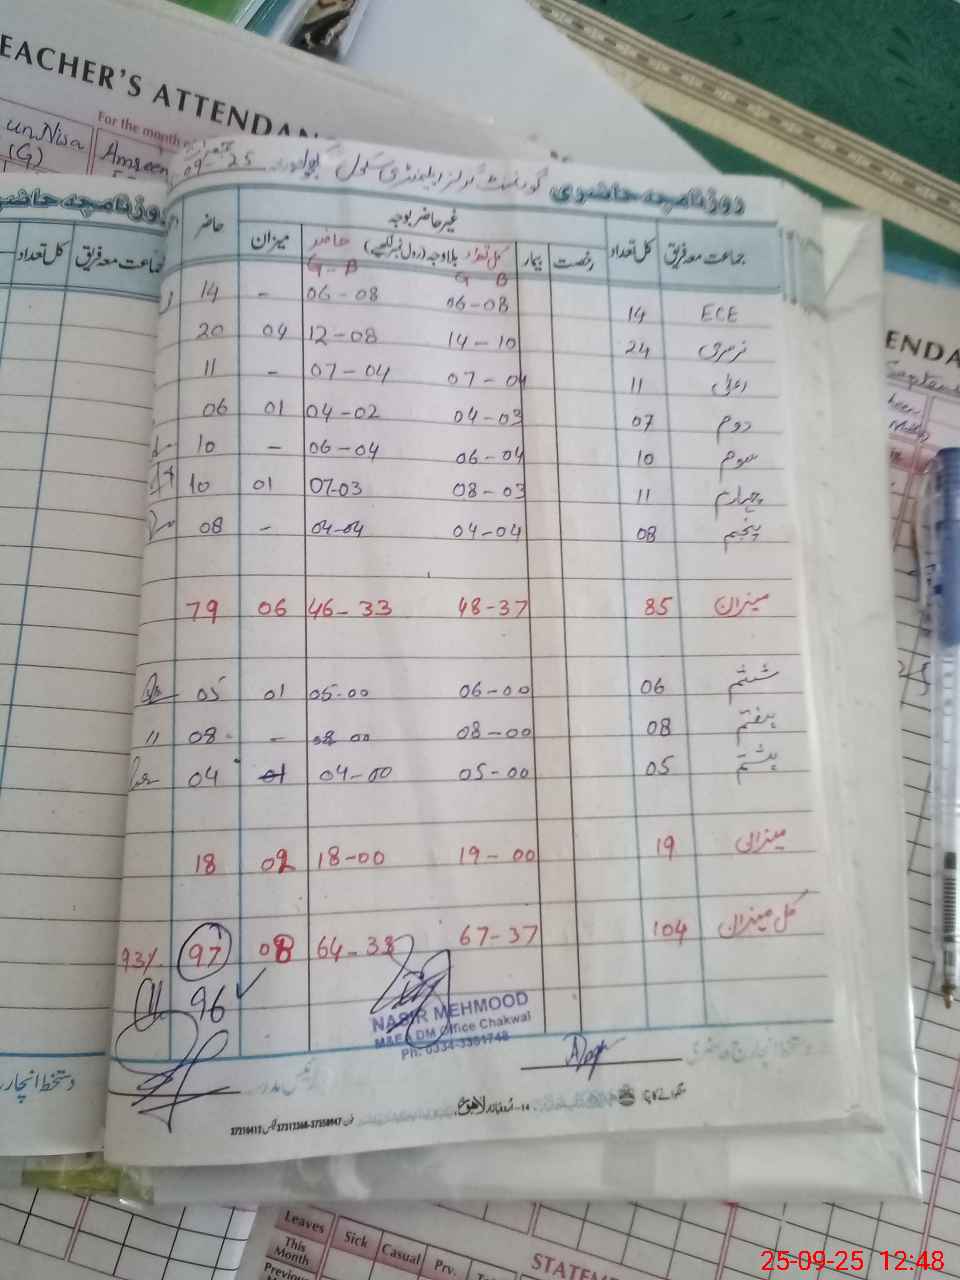 EACHER'S ATTENDAN
For the month
un Nisa
(G)
Amreen
روزنامچہ حاضری گورنمنٹ گرلز ایلیمنٹری سکول
09 25
جماعت معہ فریق کل تعداد غیر حاضر بوجہ حاضر
رخصت بیمار کل تعداد بلا وجہ (رول نمبر لکھیے) حاضر میزان
G B G - B
ECE 14 06-08 06-08 - 14
نرسری 24 14-10 12-08 04 20
اعلیٰ 11 07-04 07-04 - 11
دوم 07 04-03 04-02 01 06
سوم 10 06-04 06-04 - 10
چہارم 11 08-03 07-03 01 10
پنجم 08 04-04 04-04 - 08
میزان 85 48-37 46-33 06 79
ششم 06 06-00 05-00 01 05
ہفتم 08 08-00 08 00 - 08
ہشتم 05 05-00 04-00 01 04
میزان 19 19-00 18-00 02 18
کل میزان 104 67-37 64-33 08 97 93%
96
NASIR MEHMOOD
M&EA DM Office Chakwal
Ph: 0334-3391748
دستخط انچارج حاضری
رئیس مدرسہ
لاہور
37310412 37313360-37350947
جماعت معہ فریق کل تعداد
دستخط انچارج
ENDA
Septem
Leaves
This
Month
Previous
Sick
Casual
Prv.
STATEME
25-09-25 12:48